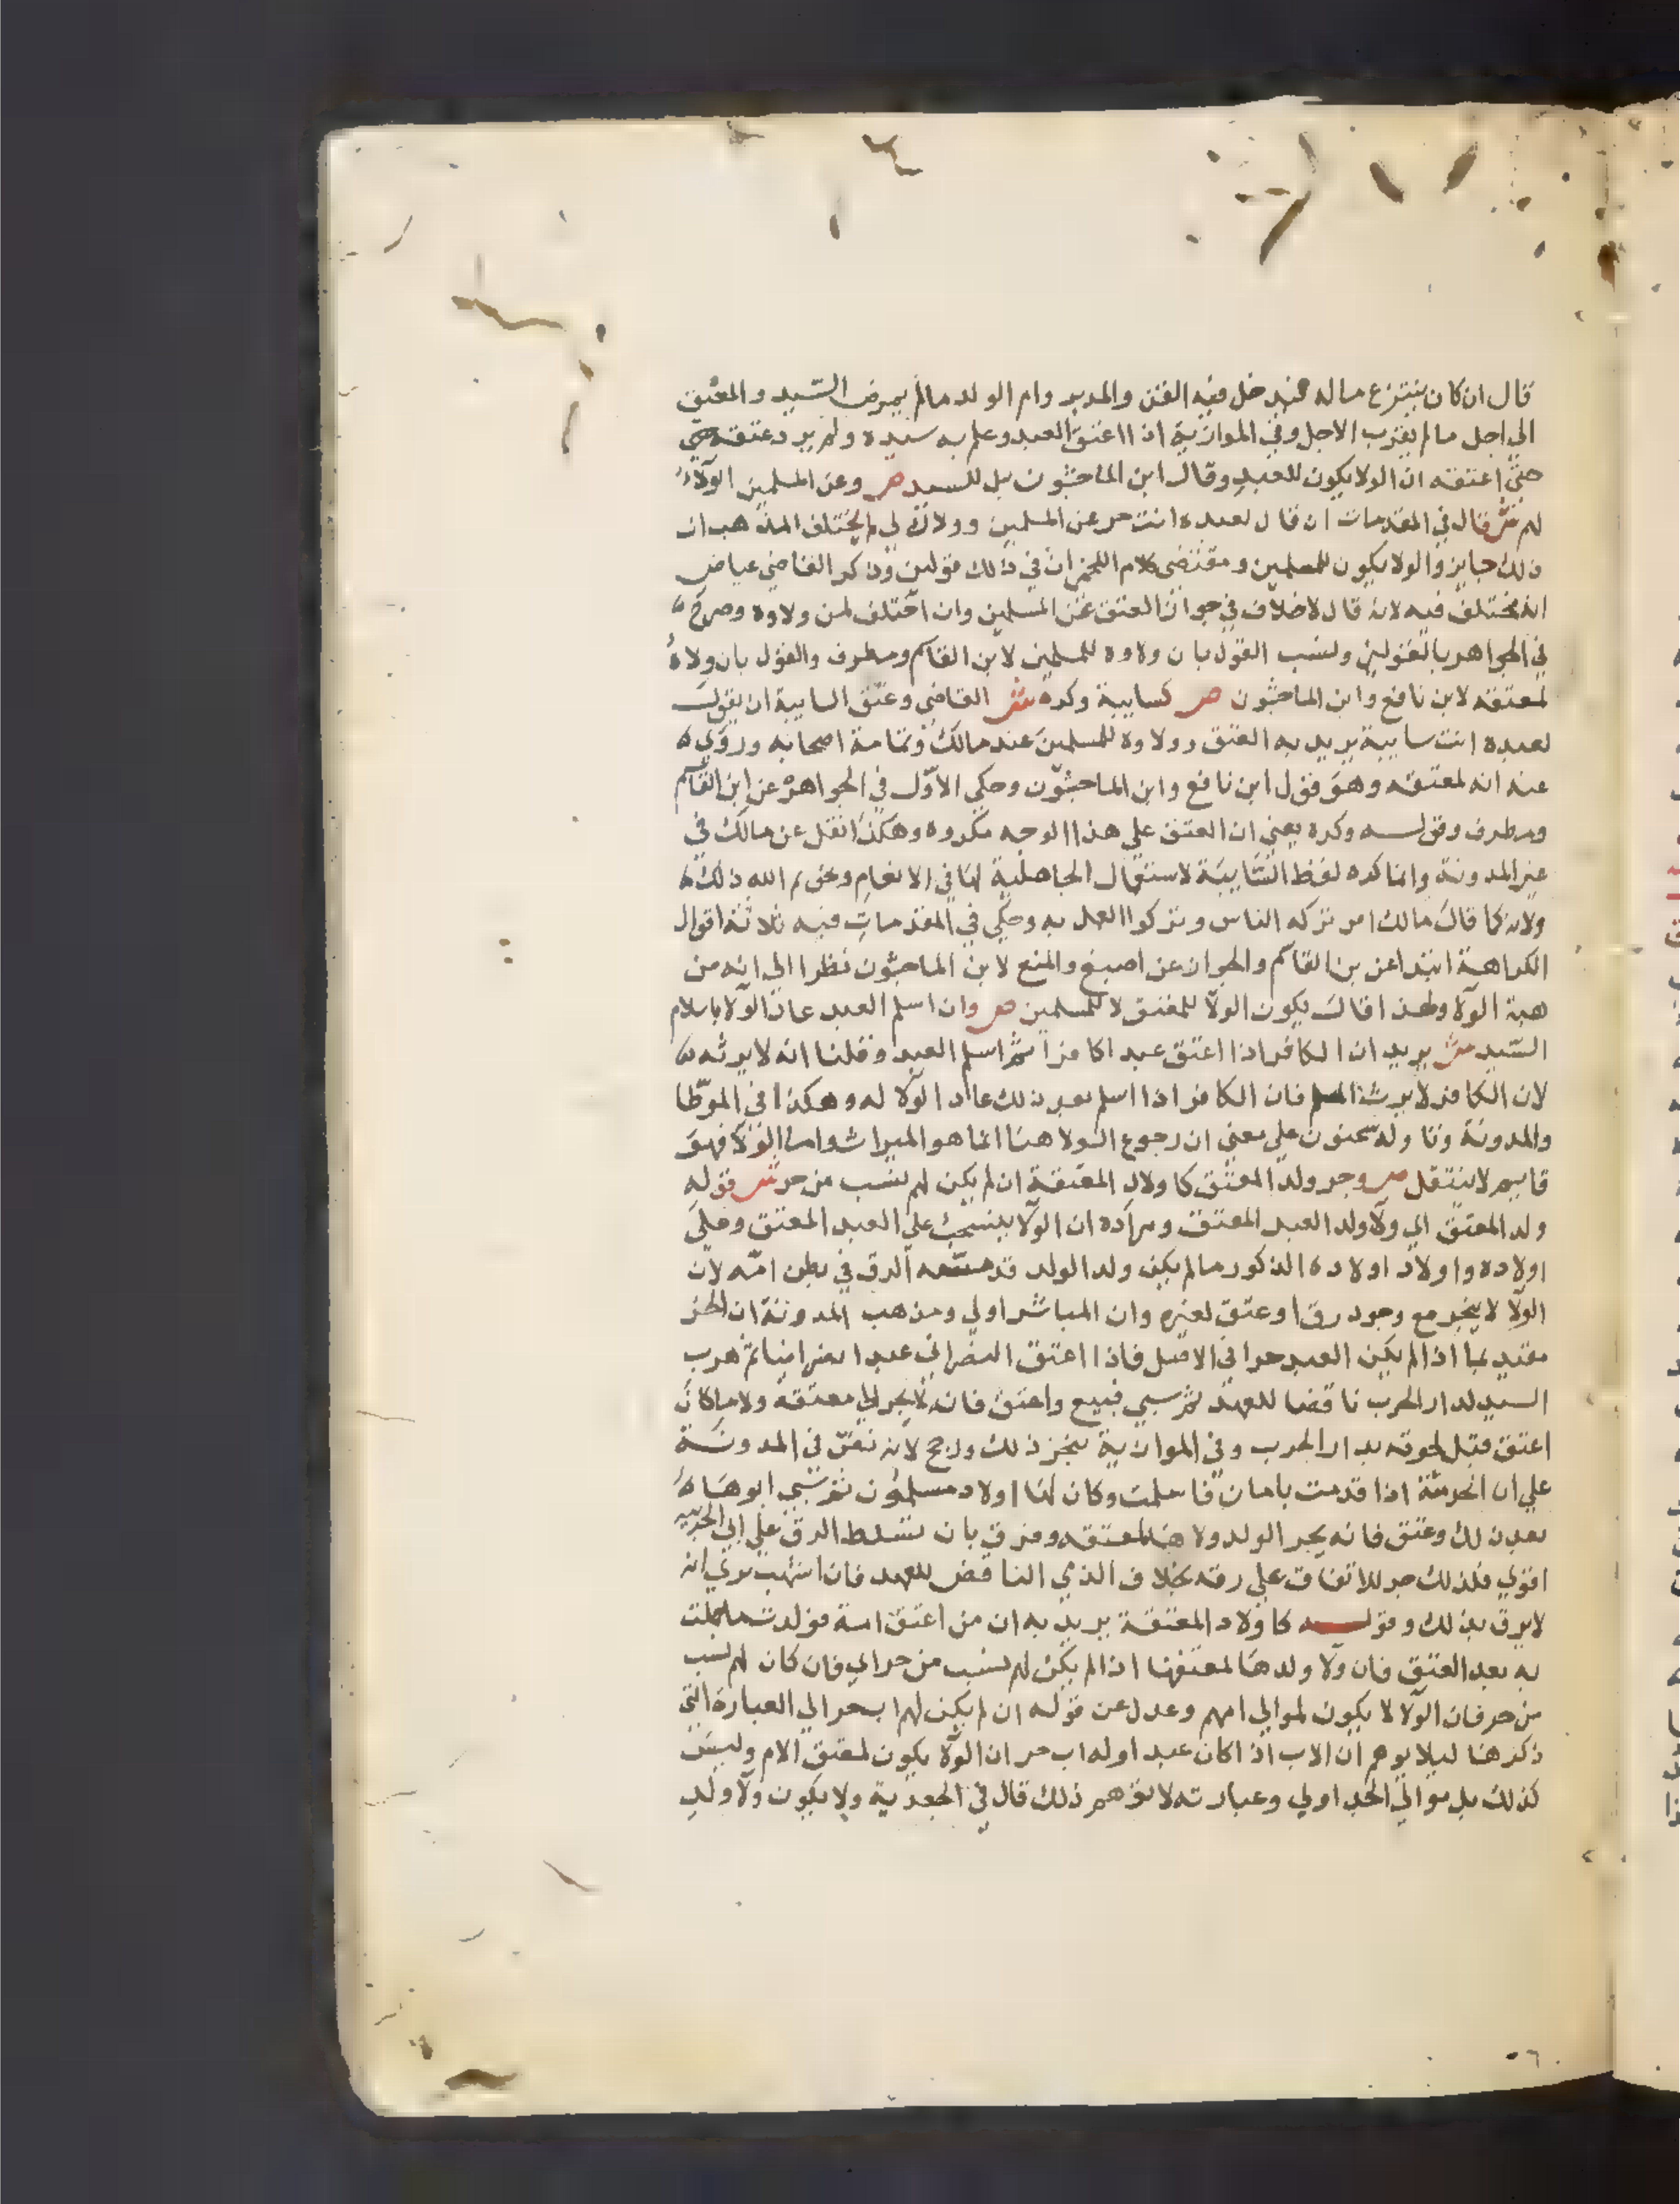 قال ان كان ينتزع ماله فيدخل فيه القن والمدبر وام الولد مالم يمرض السيد والمعتق
الي اجل مالم يقرب الاجل وفي الموازية اذا اعتق العبد وعلم به سيده ولم يرد عتقه حتي
حتي اعتقه ان الولا يكون للعبد وقال ابن الماجشون بل للسيد ص وعن المسلمين الولاء
لهم ش قال في المقدمات ان قال لعبده انت حر عن المسلمين وولاك لي لم يختلف المذهب ان
ذلك جايز والولا يكون للمسلمين ومقتضي كلام اللخمي ان في ذلك قولين وذكر القاضي عياض
انه مختلف فيه لانه قال لا خلاف في جواز العتق عن المسلمين وان اختلف لمن ولاوه وصرح
في الجواهر بالقولين ونسب القول بان ولاوه للمسلمين لابن القاسم ومطرف والقول بان ولاه
لمعتقه لابن نافع وابن الماجشون ص كسايبة وكره ش القاضي وعتق السايبة ان يقول
لعبده انت سايبة يريد به العتق وولاوه للمسلمين عند مالك وعامة اصحابه وروي
عنه انه لمعتقه وهو قول ابن نافع وابن الماجشون وحكي الاول في الجواهر عن ابن القاسم
ومطرف وقوله وكره يعني ان العتق علي هذا الوجه مكروه وهكذا نقل عن مالك في
غير المدونة وانما كره لفظ السايبة لاستعمال الجاهلية لها في الانعام وتحريم الله ذلك
ولانه كما قال مالك امر تركه الناس وتركوا العمل به وحكي في المقدمات فيه ثلاثة اقوال
الكراهة ابتدا عن بن القاسم والجواز عن اصبغ والمنع لابن الماجشون نظرا الي انه من
هبة الولا ولهذا قال يكون الولا للمعتق لا للمسلمين ص وان اسلم العبد عاد الولا باسلام
السيد ش يريد ان الكافر اذا اعتق عبدا كافرا ثم اسلم العبد وقلنا انه لا يرثه
لان الكافر لا يرث المسلم فان الكافر اذا اسلم بعد ذلك عاد الولا له وهكذا في الموطا
والمدونة وتاوله سحنون علي معني ان رجوع الولا هنا انما هو الميراث واما الولا فهو
قايم لا ينتقل ص وجر ولد المعتق كاولاد المعتقة ان لم يكن لهم نسب من حر ش قوله
ولد المعتق اي ولا ولد العبد المعتق ومراده ان الولا ينسحب علي العبد المعتق وعلي
اولاده واولاد اولاده الذكور مالم يكن ولد الولد قد مسه الرق في بطن امه لان
الولا لا ينجر مع وجود رق او عتق لغيره وان المباشر اولي ومذهب المدونة ان الجر
مقيد بما اذا لم يكن العبد حرا في الاصل فاذا اعتق النصراني عبدا نصرانيا ثم هرب
السيد لدار الحرب ناقضا للعهد ثم سبي فبيع واعتق فانه لا يجر الي معتقه ولا ما كان
اعتق قبل لحوقه بدار الحرب وفي الموازية يجر ذلك ورجح لانه نص في المدونة
علي ان الحربية اذا قدمت بامان فاسلمت وكان لها اولاد مسلمون ثم سبي ابوها
بعد ذلك وعتق فانه يجر الولد ولاهم لمعتقه وفرق بان تسلط الرق علي ابي الحربية
اقوي فلذلك جر للاتفاق علي رقه بخلاف الذمي الناقض للعهد فان اشهب يري انه
لا يرق بذلك وقوله كاولاد المعتقة يريد به ان من اعتق امة فولدت ما حملت
به بعد العتق فان ولا ولدها لمعتقها اذا لم يكن لهم نسب من حر اي فان كان لهم نسب
من حر فان الولا لا يكون لموالي امهم وعدل عن قوله ان لم يكن لهم اب حر الي العبارة التي
ذكرها ليلا يوهم ان الاب اذا كان عبدا وله اب حر ان الولا يكون لمعتق الام وليس
كذلك بل موالي الجد اولي وعبارته لا توهم ذلك قال في الجعدية ولا يكون ولا ولد